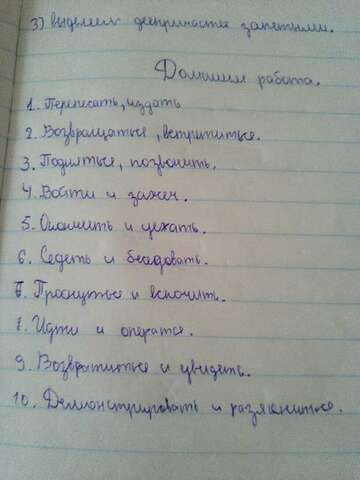 3) выделяем деепричастие запятыми.
Домашняя работа.
1. Переписать, издать
2. Возвращаться, встрититься.
3. Подняться, позвонить.
4. Войти и зажеч.
5. и уехать.
6. Седеть и беседовать.
6. Проснуться и вскочить.
8. Идти и оператся.
9. Возвратиться и увидеть.
10. Демонстрировать и